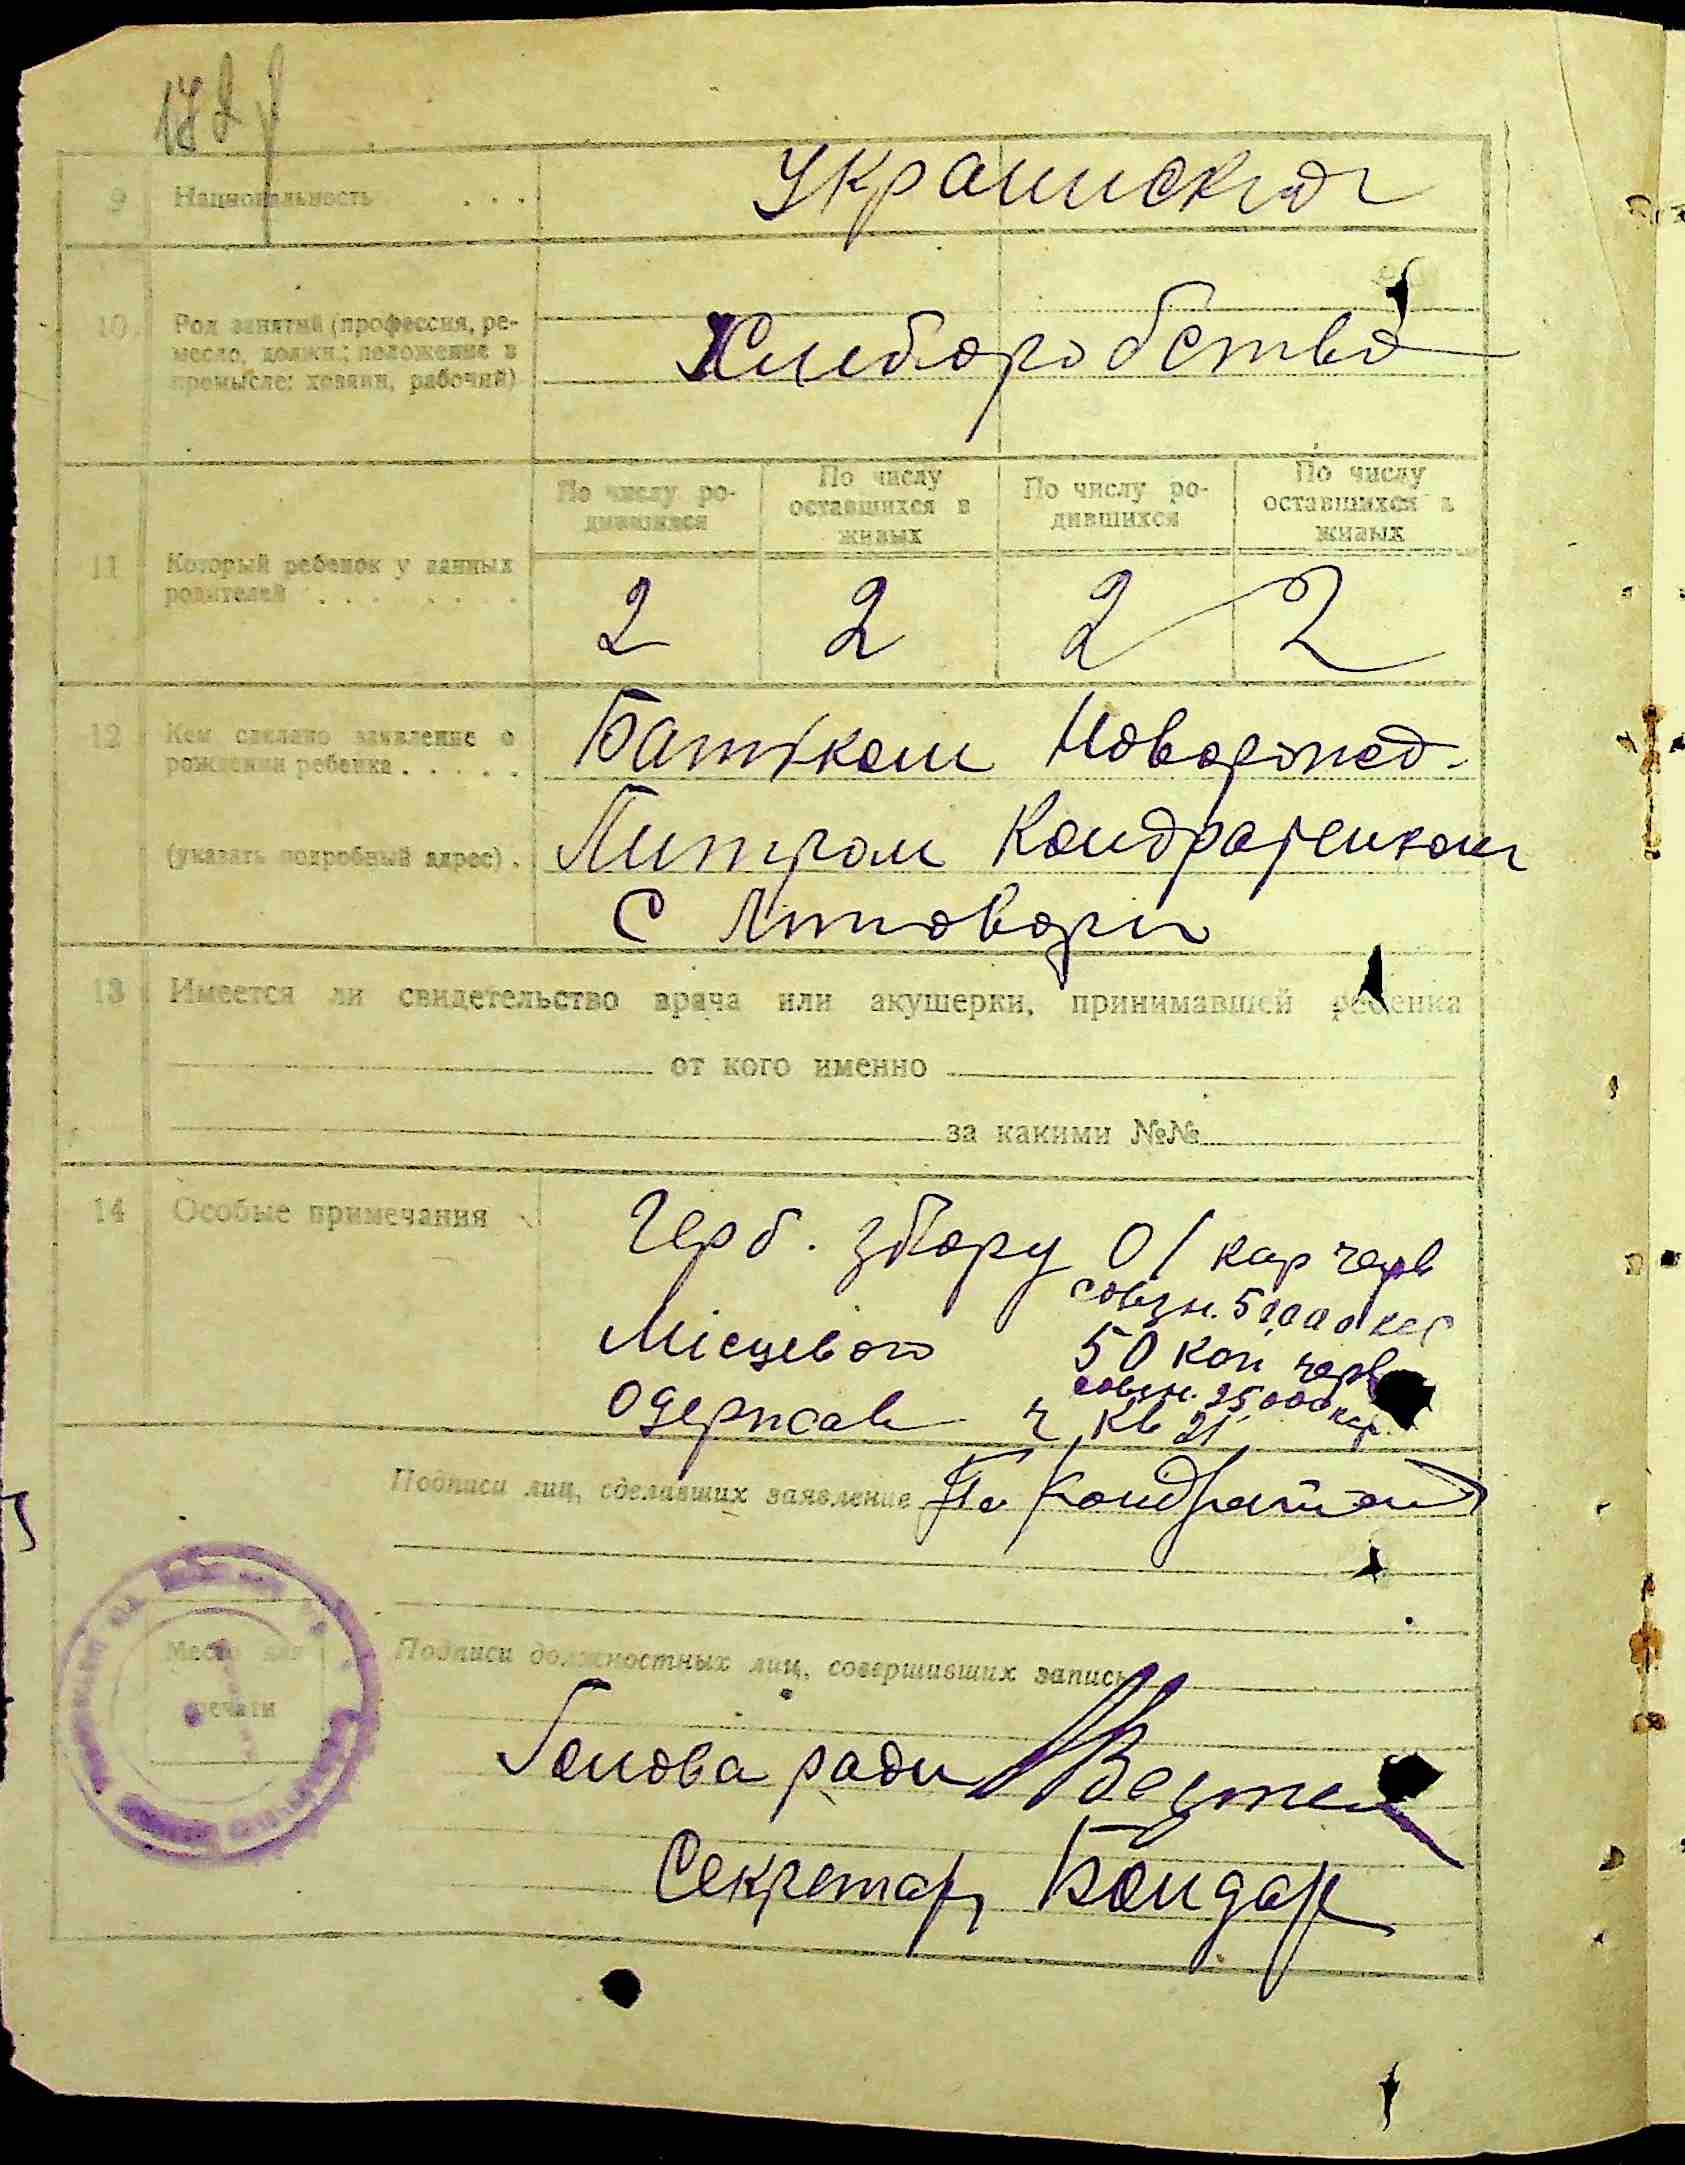 9 Национальность . . . Украинская
10. Род занятий (профессия, ре-
месло, должн.; положение в
промысле: хозяин, рабочий)
Хлиборобство
По числу ро-
дившихся
По числу
оставшихся в
живых
По числу ро-
дившихся
По числу
оставшихся в
живых
11 Который ребенок у данных
родителей . . . . . . .
2 2 2 2
12 Кем сделано заявление о
рождении ребенка . . . . .
(указать подробный адрес) .
Батьком Новорожд.
Питром Кондратенком
С
13 Имеется ли свидетельство врача или акушерки, принимавшей ребенка
от кого именно
за какими №№
14 Особые примечания
Герб. збору 01 кар черв
совзн. 5000 кар
Місцевого 50 коп черв
совзн. 25000 кар
Одержав ч кв 21
Подписи лиц, сделавших заявление Кондратенко
Место для
печати
Подписи должностных лиц, совершивших запись
Голова ради
Секретарь Бондар